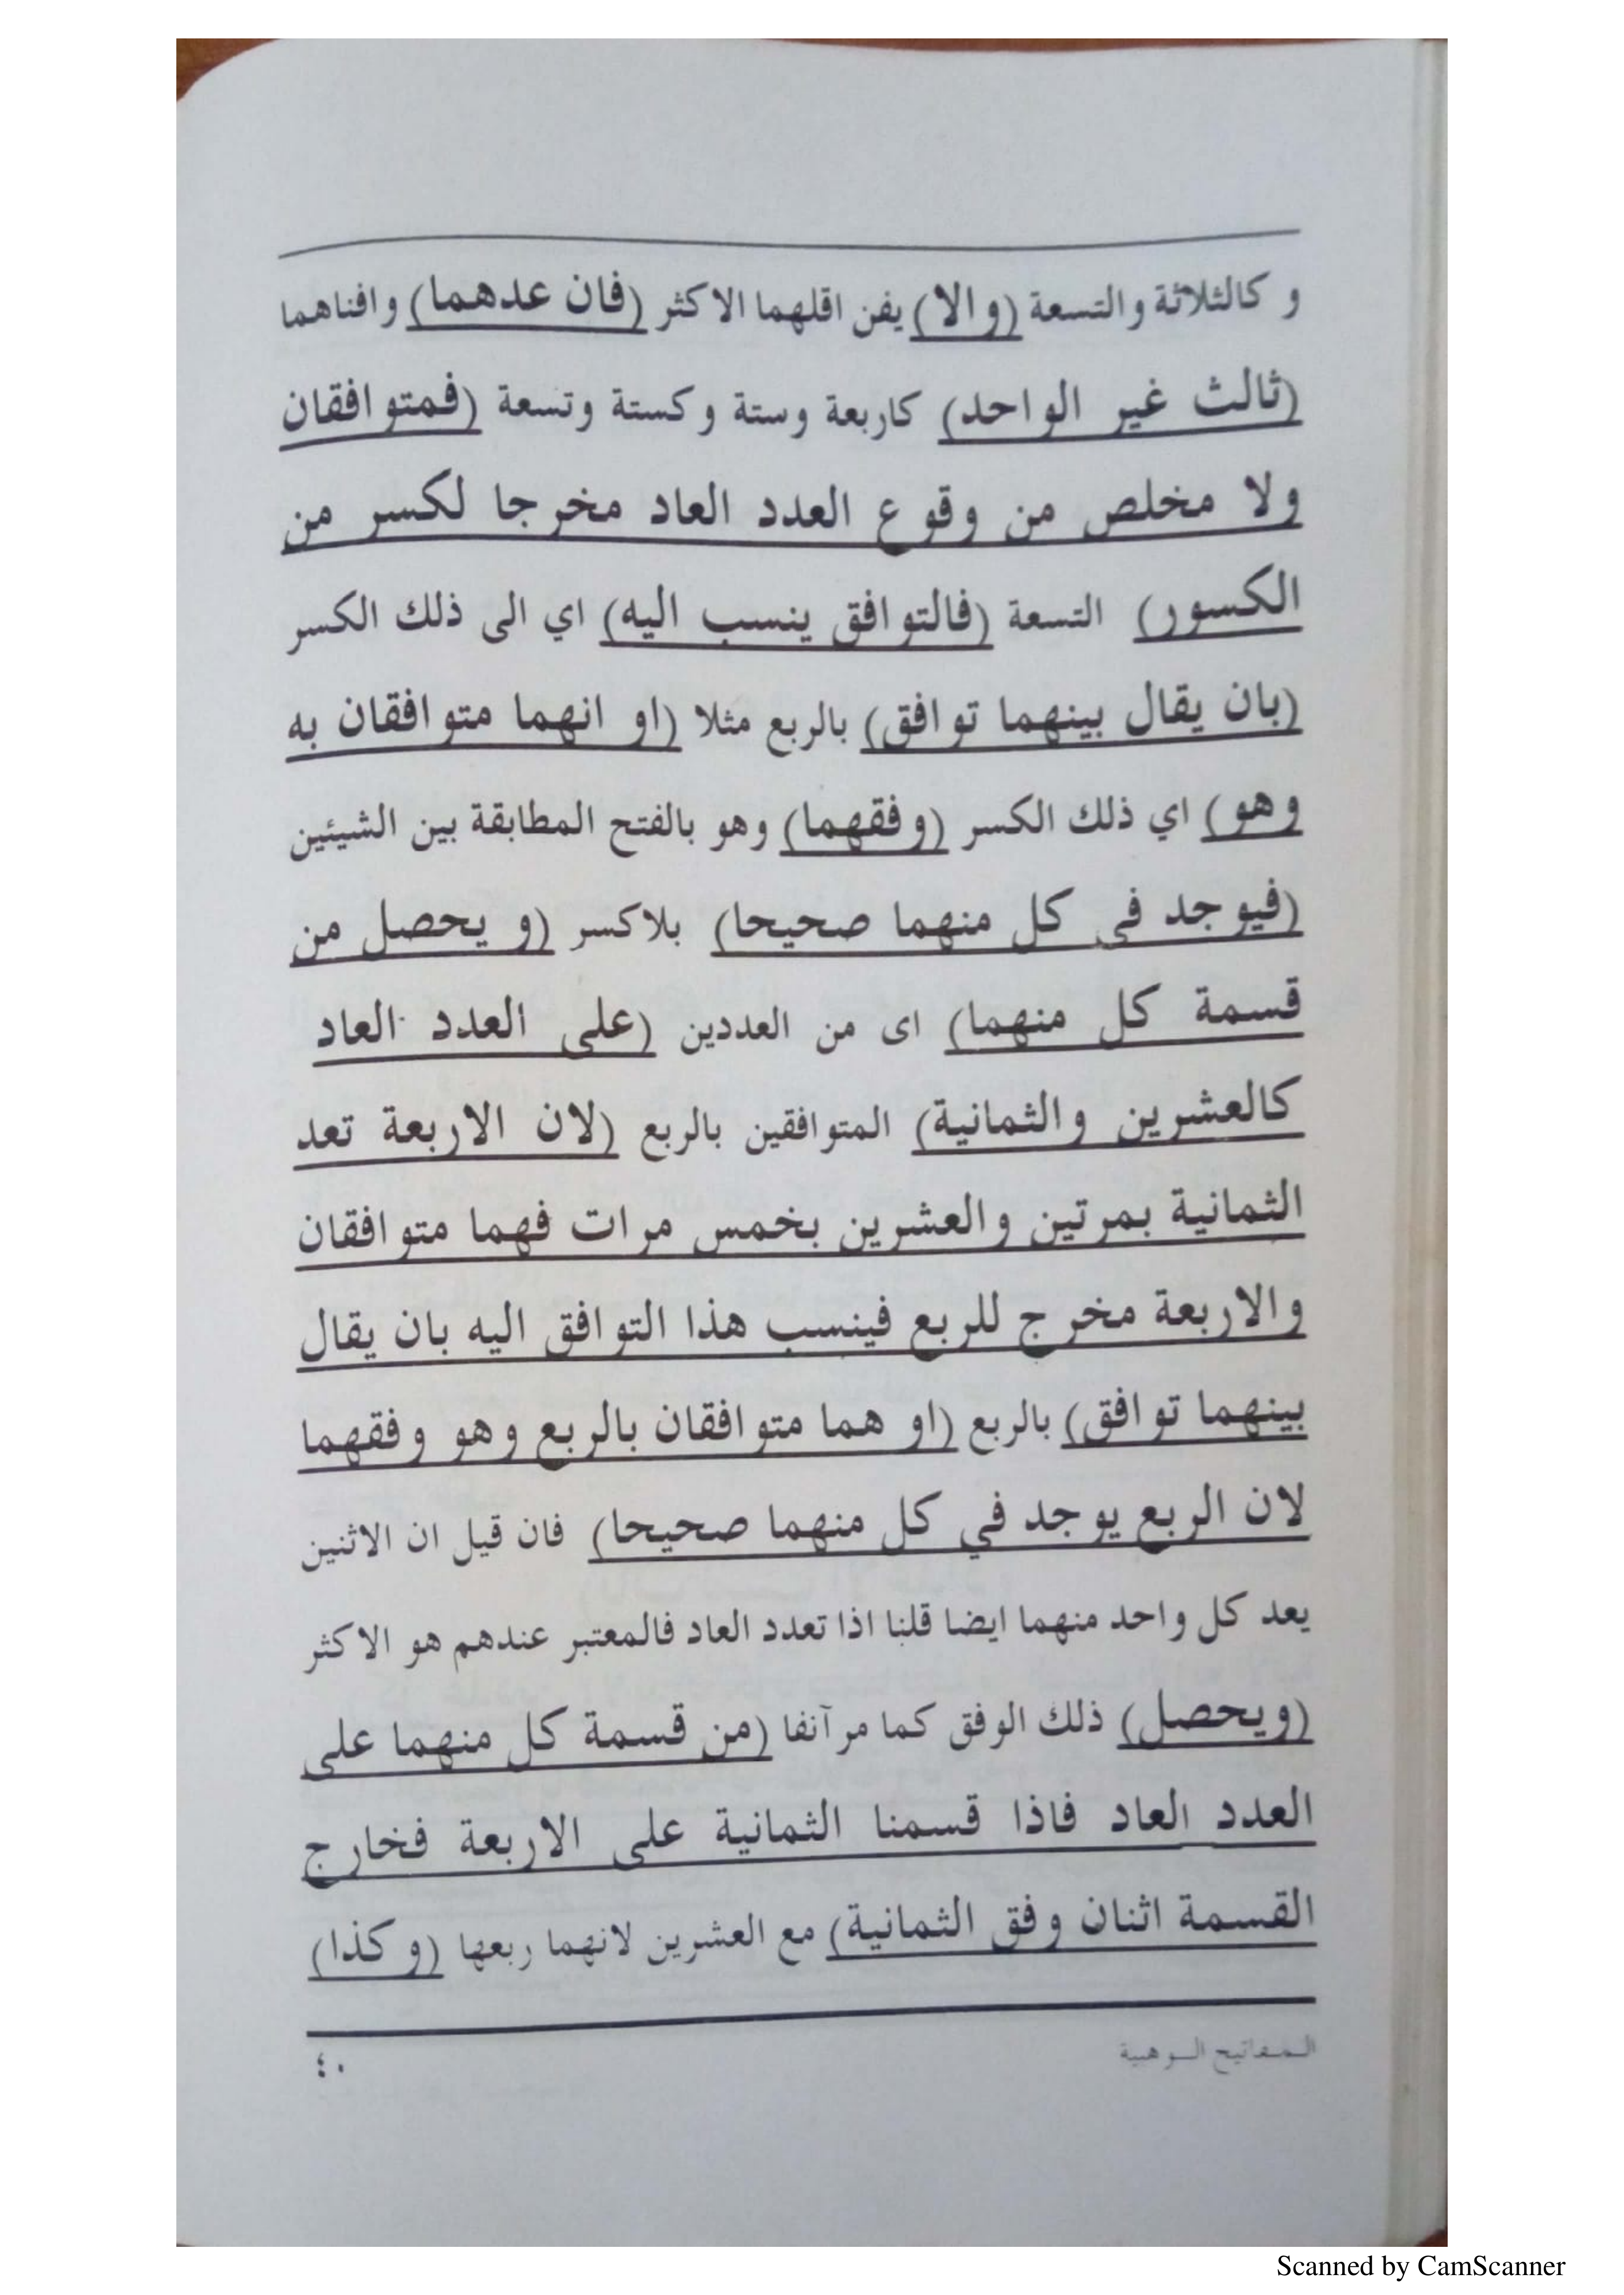 و كالثلاثة والتسعة (والا) يفن اقلهما الاكثر (فان عدهما) وافناهما
(ثالث غير الواحد) كاربعة وستة وكستة وتسعة (فمتوافقان
ولا مخلص من وقوع العدد العاد مخرجا لكسر من
الكسور) التسعة (فالتوافق ينسب اليه) اي الى ذلك الكسر
(بان يقال بينهما توافق) بالربع مثلا (او انهما متوافقان به
وهو) اي ذلك الكسر (وفقهما) وهو بالفتح المطابقة بين الشيئين
(فيوجد في كل منهما صحيحا) بلاكسر (و يحصل من
قسمة كل منهما) اى من العددين (على العدد العاد
كالعشرين والثمانية) المتوافقين بالربع (لان الاربعة تعد
الثمانية بمرتين والعشرين بخمس مرات فهما متوافقان
والاربعة مخرج للربع فينسب هذا التوافق اليه بان يقال
بينهما توافق) بالربع (او هما متوافقان بالربع وهو وفقهما
لان الربع يوجد في كل منهما صحيحا) فان قيل ان الاثنين
يعد كل واحد منهما ايضا قلنا اذا تعدد العاد فالمعتبر عندهم هو الاكثر
(ويحصل) ذلك الوفق كما مر آنفا (من قسمة كل منهما على
العدد العاد فاذا قسمنا الثمانية على الاربعة فخارج
القسمة اثنان وفق الثمانية) مع العشرين لانهما ربعها (وكذا)
المفاتيح الوهبية
٤٠
Scanned by CamScanner